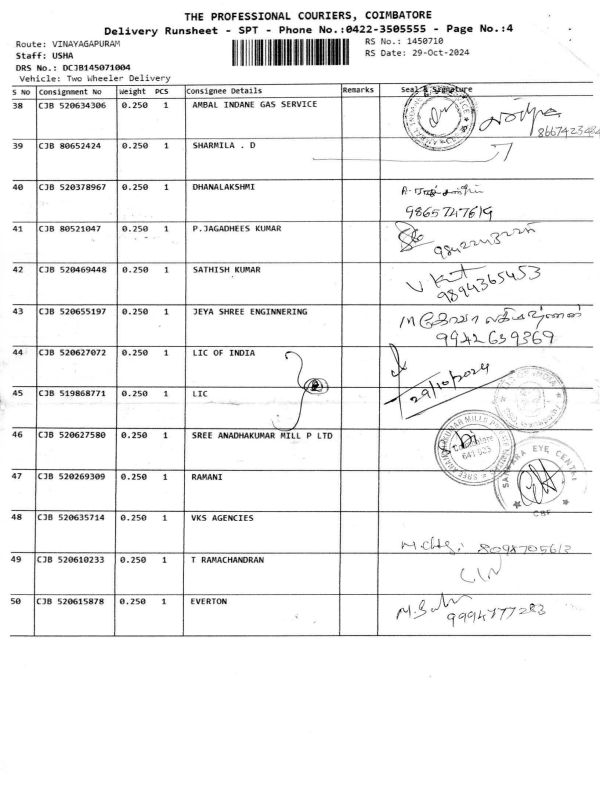 THE PROFESSIONAL COURIERS, COIMBATORE
Delivery Runsheet - SPT - Phone No.:0422-3505555 - Page No.:4
Route: VINAYAGAPURAM
RS No.: 1450710
Staff: USHA
RS Date: 29-Oct-2024
DRS No.: DCJB145071004
Vehicle: Two Wheeler Delivery
S No Consignment No Weight PCS Consignee Details Remarks Seal & Signature
38 CJB 520634306 0.250 1 AMBAL INDANE GAS SERVICE
8667423484
39 CJB 80652424 0.250 1 SHARMILA . D
40 CJB 520378967 0.250 1 DHANALAKSHMI
9865747619
41 CJB 80521047 0.250 1 P.JAGADHEES KUMAR
42 CJB 520469448 0.250 1 SATHISH KUMAR
9894365453
43 CJB 520655197 0.250 1 JEYA SHREE ENGINNERING
9942659369
44 CJB 520627072 0.250 1 LIC OF INDIA
29/10/2024
45 CJB 519868771 0.250 1 LIC
46 CJB 520627580 0.250 1 SREE ANADHAKUMAR MILL P LTD
47 CJB 520269309 0.250 1 RAMANI
48 CJB 520635714 0.250 1 VKS AGENCIES
49 CJB 520610233 0.250 1 T RAMACHANDRAN
50 CJB 520615878 0.250 1 EVERTON
9994777283